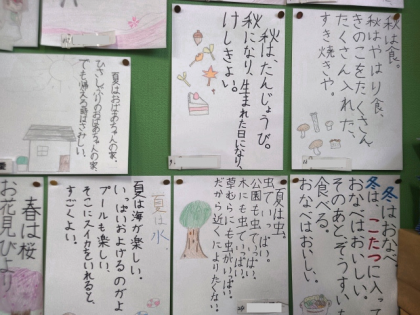 秋は食。
秋はやはり食、
きのこをたくさん
たくさん入れた、
すき焼きや。
秋は、たんじょうび。
秋になり、生まれた日になり、
けしきよい。
夏はおばあちゃんの家、
ひさしぶりのおばあちゃんの家、
でも帰る時はさみしい。
冬はおなべ
冬は、こたつに入って
おなべはおいしい。
そのあと、ぞうすいも
食べる。
おなべはおいしい。
夏は虫。
虫でいっぱい。
公園も虫でいっぱい。
木にも虫でいっぱい。
草むらにも虫がいっぱい。
だから近くによりたくない。
夏は水、
夏は海が楽しい。
いっぱいおよげるのがよい。
プールも楽しい。
そこにスイカをいれると、
すごくよい。
春は桜
お花見びより